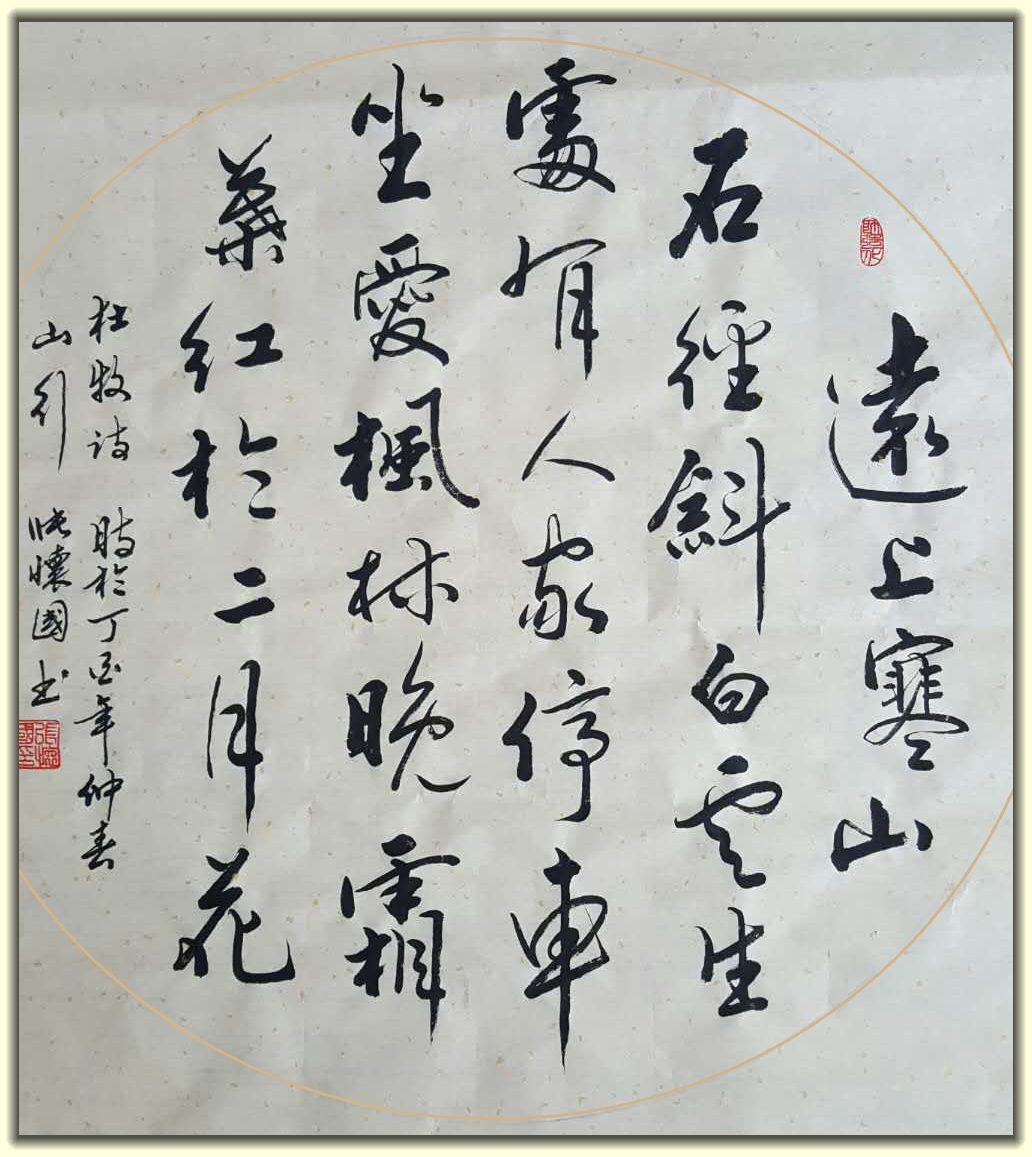 遠上寒山
石徑斜白雲生
處有人家停車
坐愛楓林晚霜
葉紅於二月花
杜牧詩 時於丁酉年仲春
山行 張懷國书